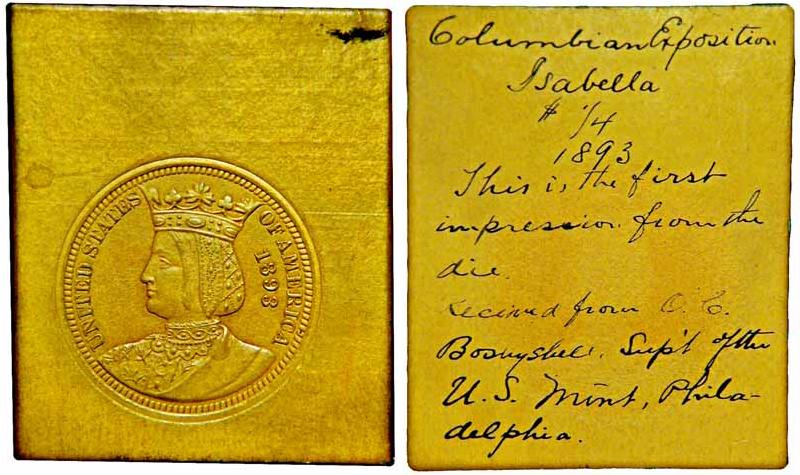 UNITED STATES OF AMERICA
1893
Columbian Exposition
Isabella
$ 1/4
1893
This is the first
impression from the
die.
received from O. C.
Bosbyshell, Sup't of the
U. S. Mint, Phila-
delphia.